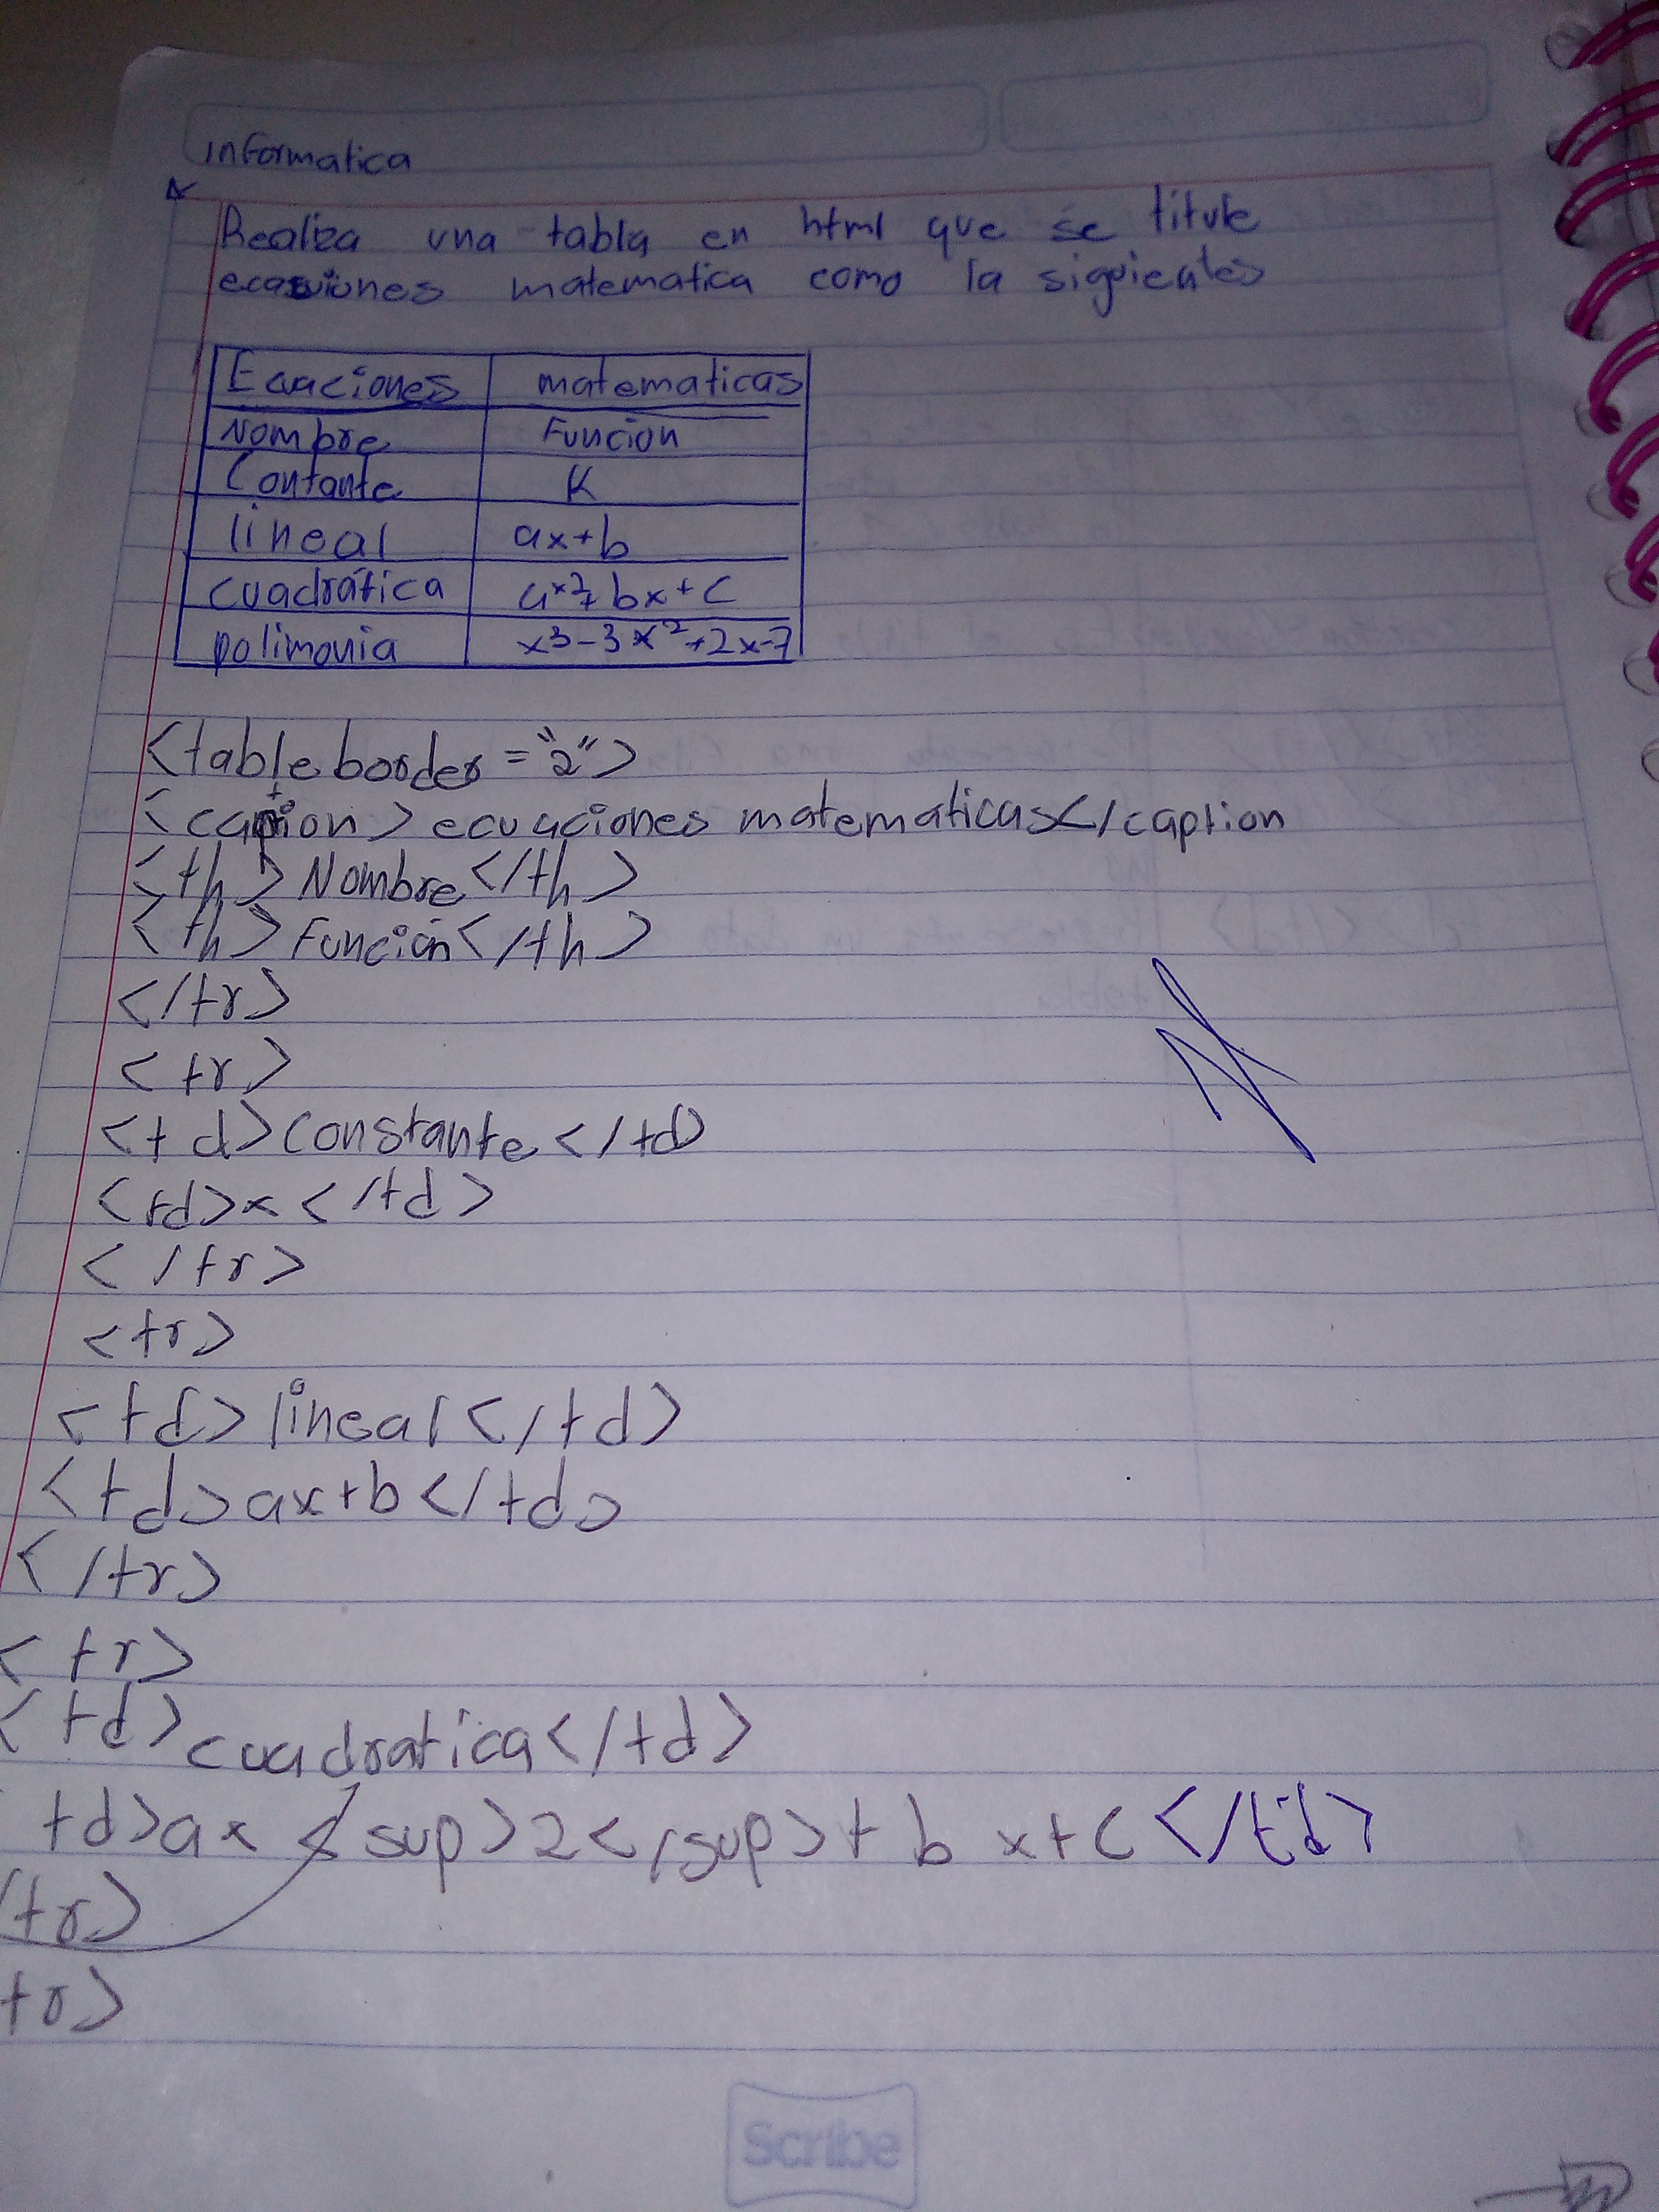 Informatica
Realiza una tabla en html que se titule
ecasuiones matematica como la siguientes
Ecuaciones matematicas
Nombre Funcion
Contante K
lineal ax+b
cuadrática ax2+bx+c
polimonia x3-3x2+2x-7
<table border="2">
<caption>ecuaciones matematicas</caption
<th>Nombre</th>
<th>Función</th>
</tr>
<tr>
<td>Constante</td>
<td>x</td>
</tr>
<tr>
<td>lineal</td>
<td>ax+b</td>
</tr>
<tr>
<td>cuadratica</td>
td>ax<sup>2</sup>+bx+c</td>
/tr>
tr>
Scribe